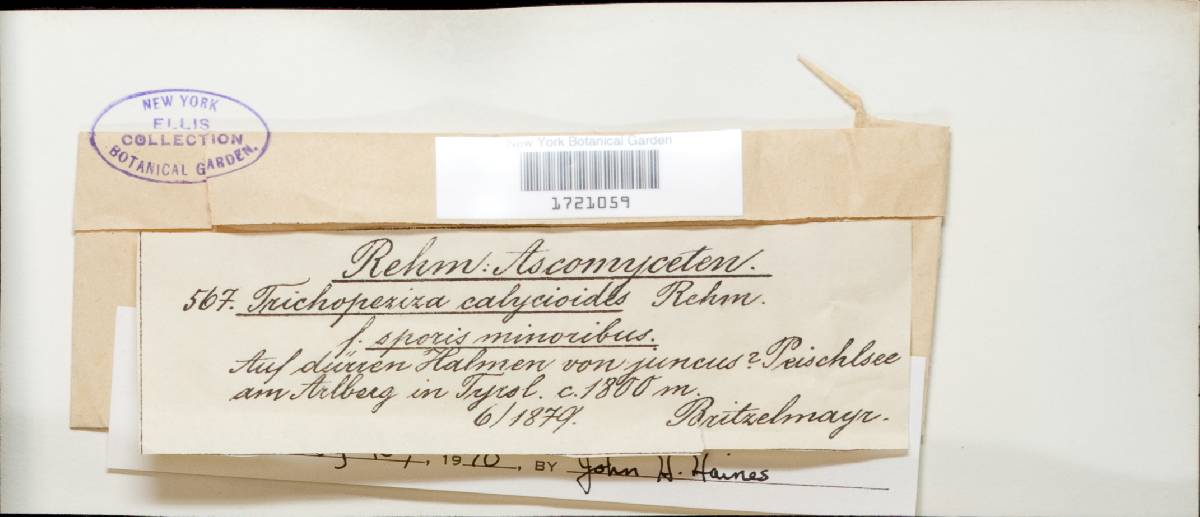 NEW YORK
ELLIS
COLLECTION
BOTANICAL GARDEN.
New York Botanical Garden
1721059
Rehm: Ascomyceten.
567. Trichopeziza calycioides Rehm.
f. sporis minoribus.
Auf dürren Halmen von juncus? Peischlsee
am Arlberg in Tyrol. c. 1800 m.
6/1879. Britzelmayr.
, 1970, BY John H. Haines